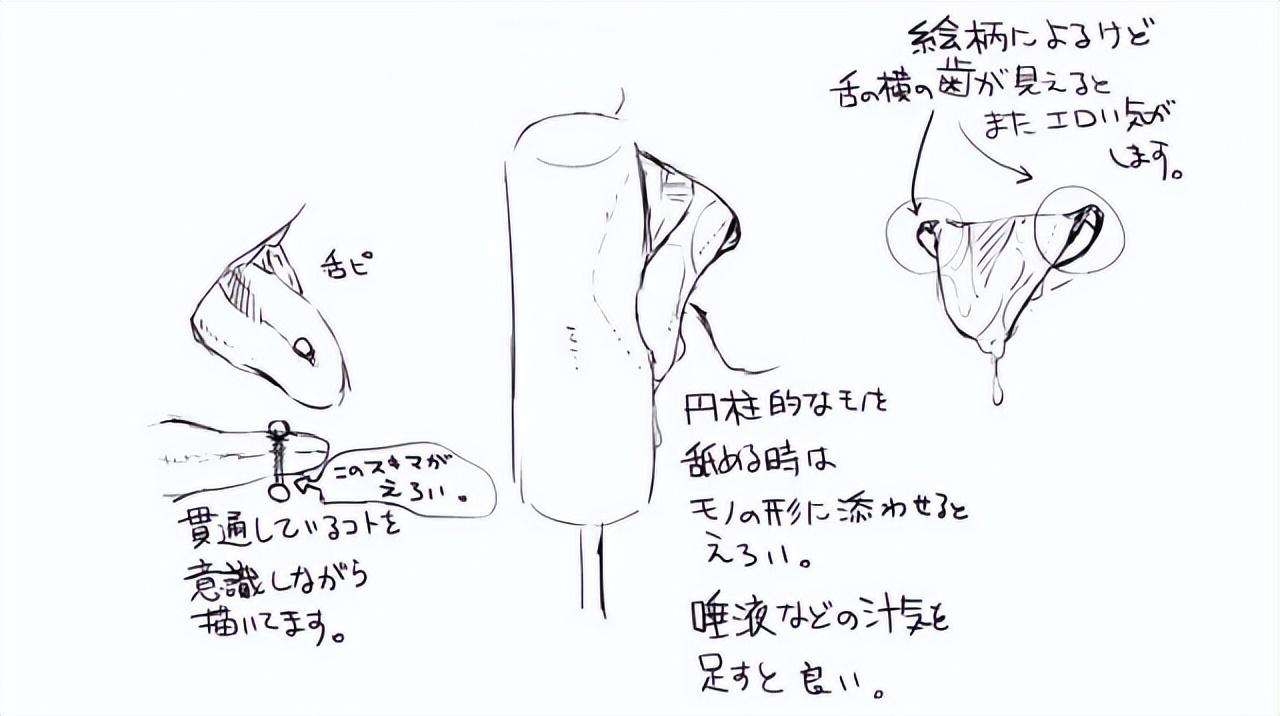 絵柄によるけど
舌の横の歯が見えると
またエロい気が
します。
舌ピ
このスキマが
えろい。
貫通しているコトを
意識しながら
描いてます。
円柱的なモノを
舐める時は
モノの形に添わせると
えろい。
唾液などの汁気を
足すと良い。